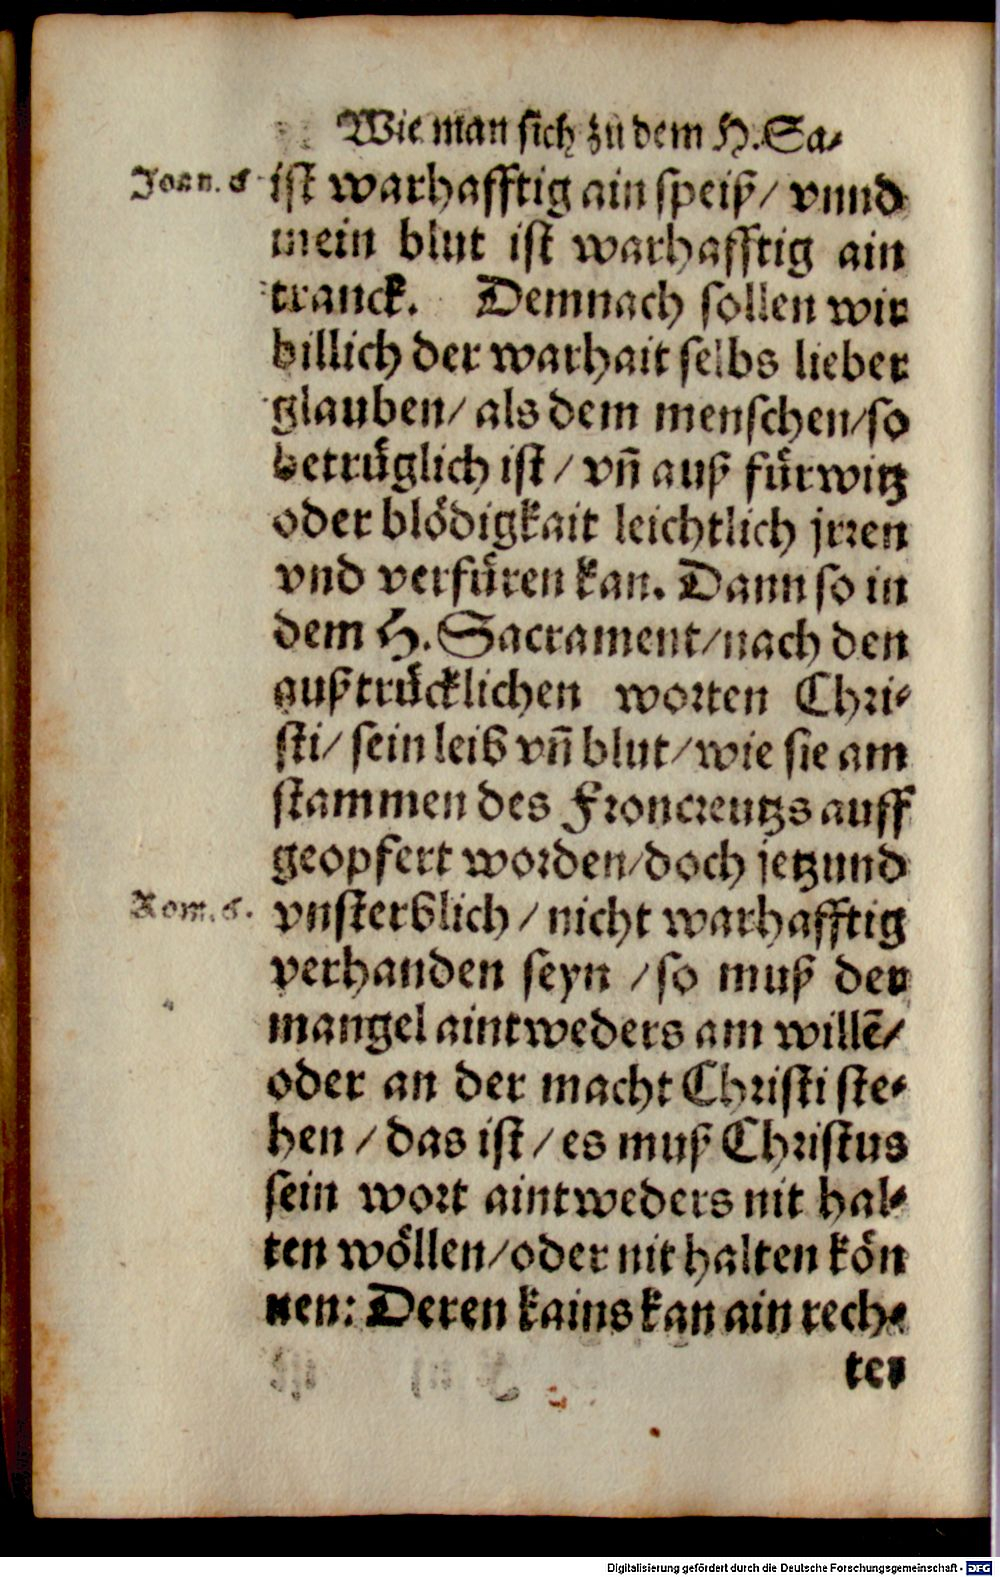 Wie man sich zů dem H. Sa⸗
Joan. 6
ist warhafftig ain speiß/ vnnd
mein blut ist warhafftig ain
tranck. Demnach sollen wir
billich der warhait selbs lieber
glauben/ als dem menschen/ so
betrüglich ist/ vñ auß fürwitz
oder blödigkait leichtlich jrren
vnd verfüren kan. Dann so in
dem H. Sacrament/ nach den
außtrücklichen worten Chri⸗
sti/ sein leib vñ blut/ wie sie am
stammen des Froncreutzs auff
geopfert worden/ doch jetzund
Rom. 6.
vnsterblich/ nicht warhafftig
verhanden seyn/ so muß der
mangel aintweders am willẽ/
oder an der macht Christi ste⸗
hen/ das ist/ es muß Christus
sein wort aintweders nit hal⸗
ten wöllen/ oder nit halten kön
nen: Deren kains kan ain rech⸗
ter
Digitalisierung gefördert durch die Deutsche Forschungsgemeinschaft - DFG